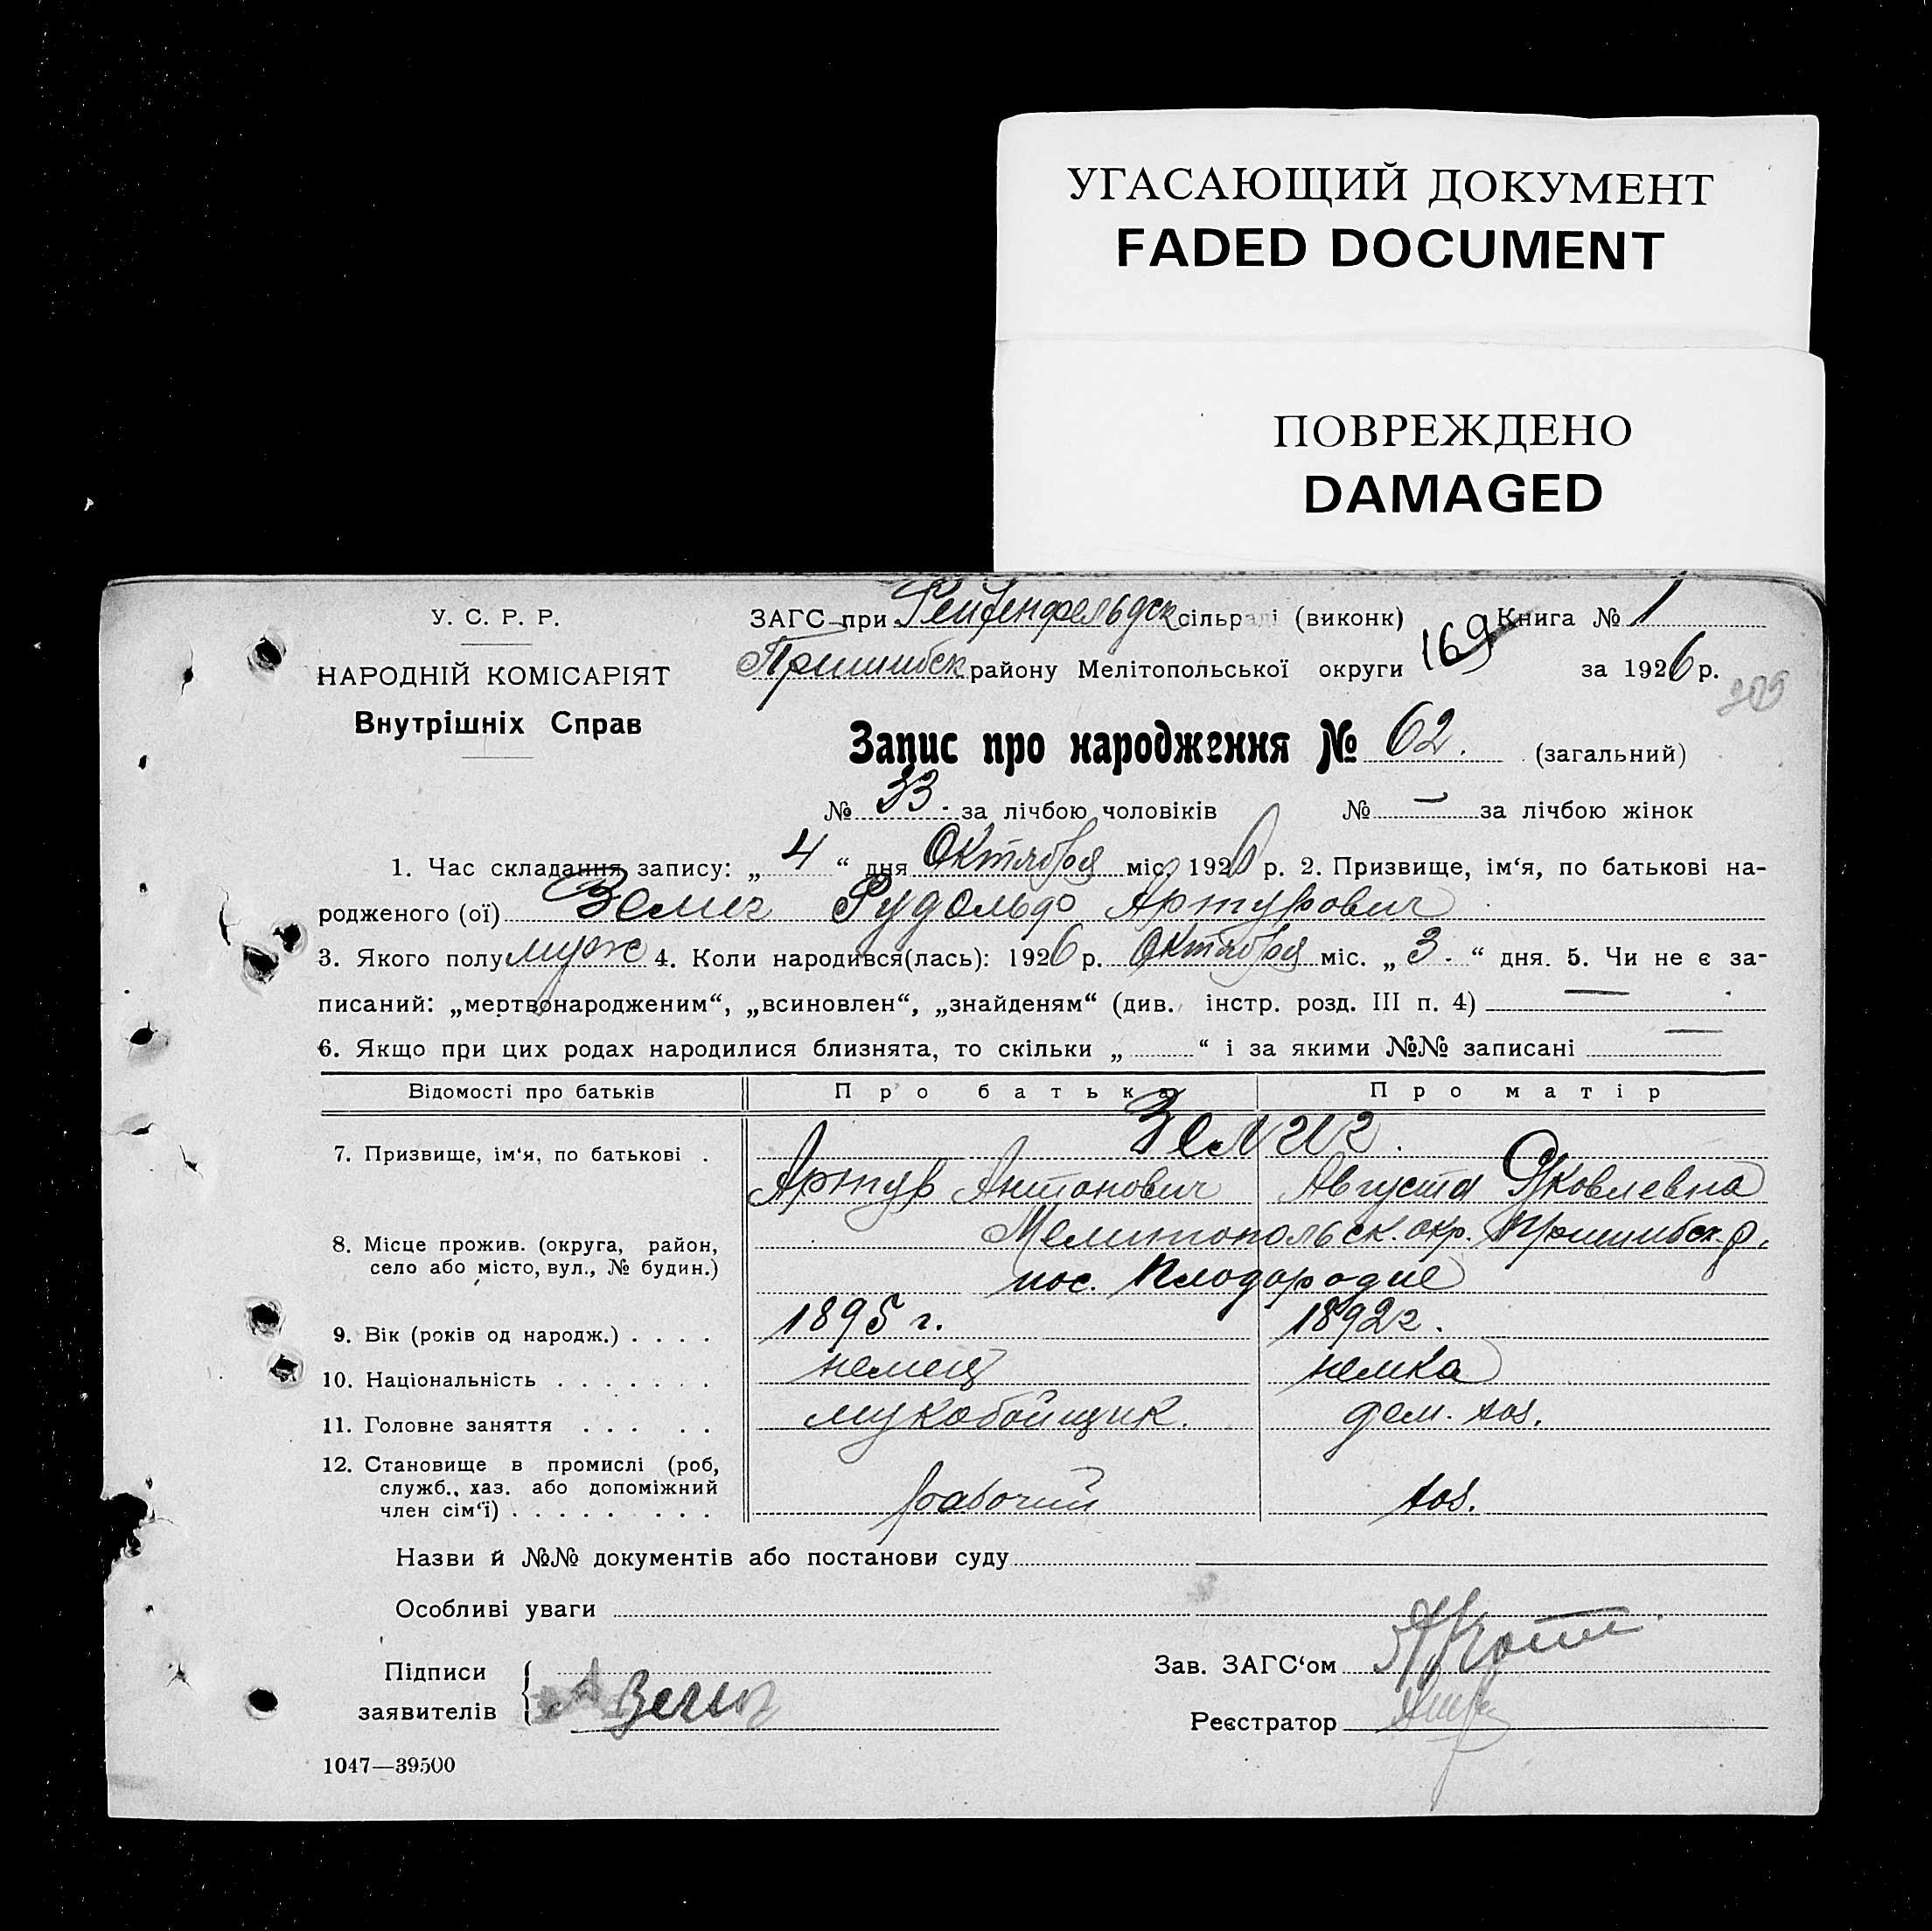 УГАСАЮЩИЙ ДОКУМЕНТ
FADED DOCUMENT
ПОВРЕЖДЕНО
DAMAGED
У. С. Р. Р.
НАРОДНІЙ КОМІСАРІЯТ
Внутрішніх Справ
ЗАГС при Рейхенфельдск сільраді (виконк) Книга № 1
Пришибск району Мелітопольської округи 169 за 1926 р.
209
Запис про народження № 62. (загальний)
№ 33. за лічбою чоловіків № — за лічбою жінок
1. Час складання запису: „ 4 “ дня Октября міс. 1926 р. 2. Призвище, ім‘я, по батькові на-
родженого (ої) Земиг Рудольф Артурович
3. Якого полу муж 4. Коли народився(лась): 1926 р. Октября міс. „ 3. “ дня. 5. Чи не є за-
писаний: „мертвонародженим“, „всиновлен“, „знайденям“ (див. інстр. розд. III п. 4) —
6. Якщо при цих родах народилися близнята, то скільки „ “ і за якими №№ записані —
Відомості про батьків Про батька Про матір
Земиг.
7. Призвище, ім‘я, по батькові . Артур Антонович Августа Яковлевна
8. Місце прожив. (округа, район, село або місто, вул., № будин.) Мелитопольск. окр. Пришибск. р.
пос. Плодородие
9. Вік (років од народж.) . . . . 1895 г. 1892 г.
10. Національність . . . . . . . немец немка
11. Головне заняття . . . . . мукобойщик. дом. хоз.
12. Становище в промислі (роб,
служб., хаз. або допоміжний
член сім‘ї) . . . . . . . . . рабочий хоз.
Назви й №№ документів або постанови суду
Особливі уваги
Підписи
заявителів А Земиг
Зав. ЗАГС‘ом
Реєстратор
1047—39500